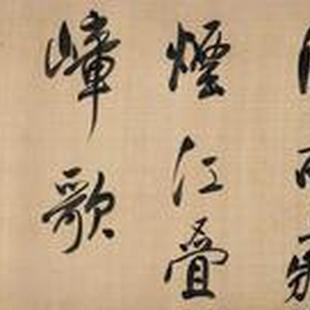 煙江叠
嶂歌